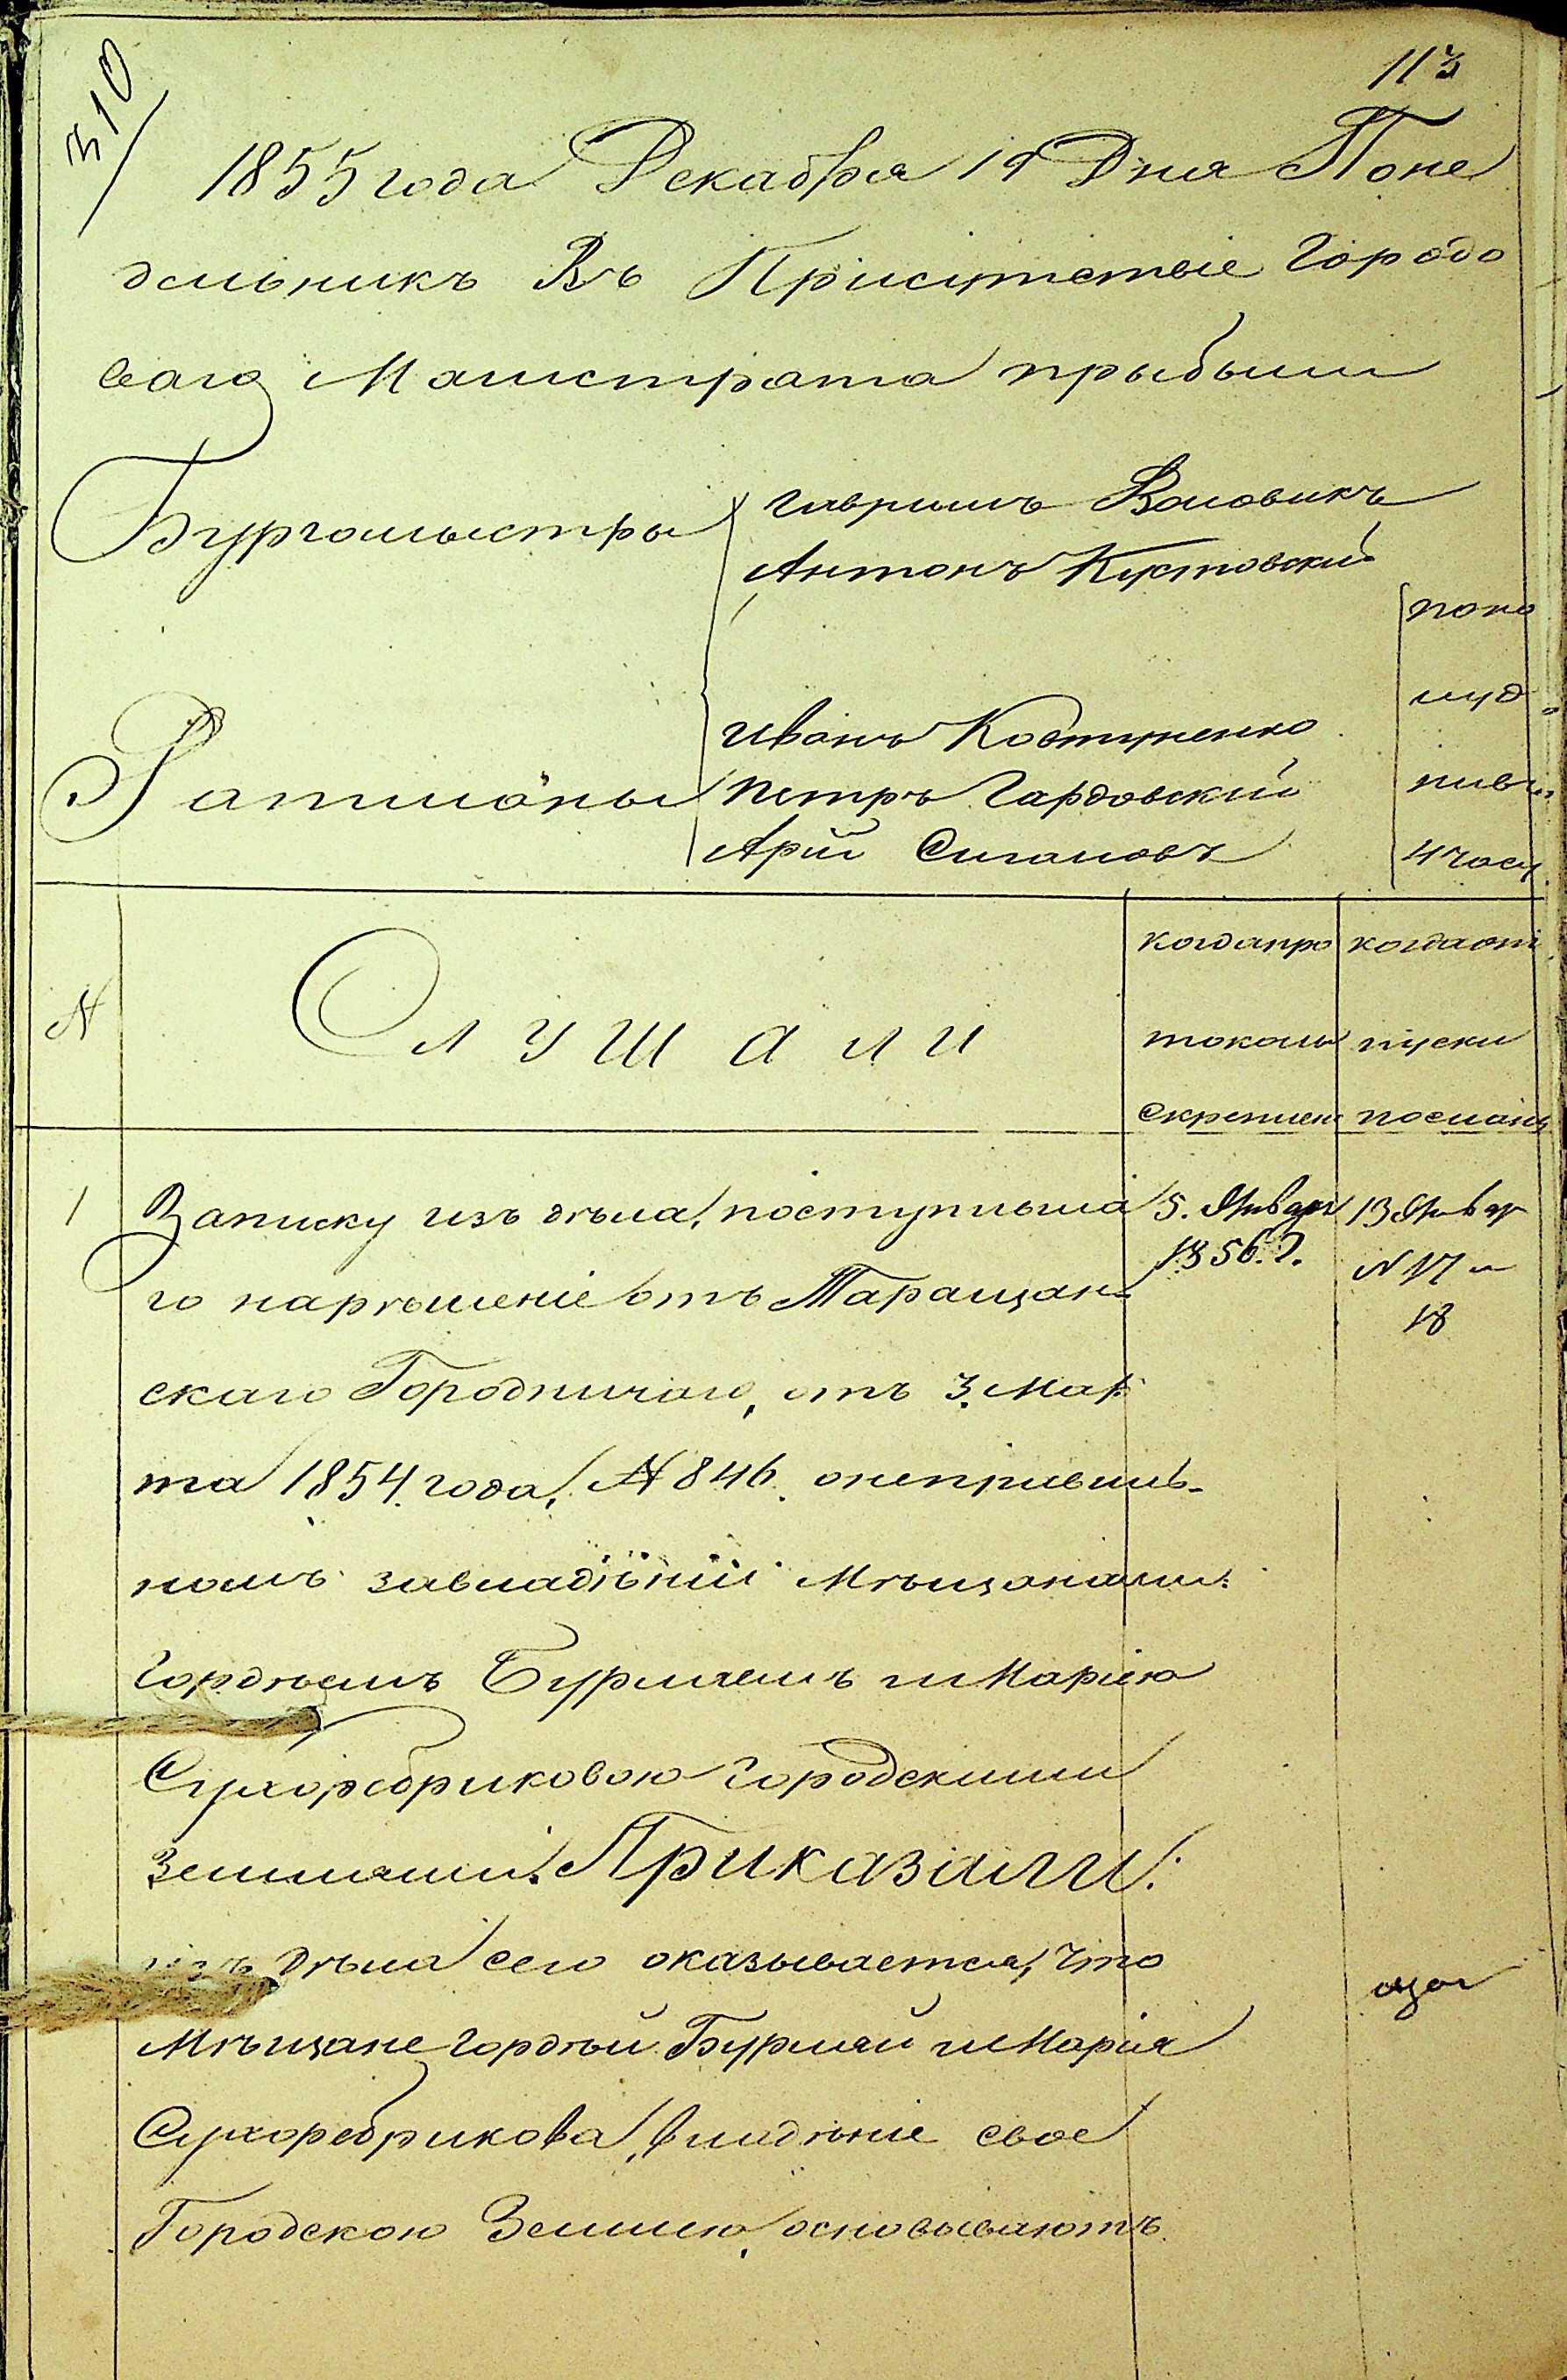 113
310
1855 года Декабря 19 Дня Поне
дельникъ Въ Присутствіе Городо
ваго Магистрата прыбыли
Бургомыстры
Гаврыилъ Воловикъ
Антонъ Кустовский
Ратманы
Иванъ Ковтуненко
Петръ Гардовский
Арій Сигаловъ
попо
луд
нивъ
4 часу
N
Слушали
когда про
токолъ
скреплен
когда от
пуски
посланы
1
Записку изъ дѣла, поступивша
го нарѣшеніе отъ Таращан-
скаго Городничаго, отъ 3. Мар
та 1854. года, N 846. онеправиль-
номъ завладѣніи Мѣщанами:
Гордѣемъ Бурлаемъ и Маріею
Сухоребриковою Городскими
Землями. Приказали:
изъ Дѣла сего оказывается, что
Мѣщане Гордѣй Бурлай и Марія
Сухоребрикова, владѣніе свое
Городскою Землею, основываютъ
5. Январ
1856. г.
13 Январ
N 17 и
18